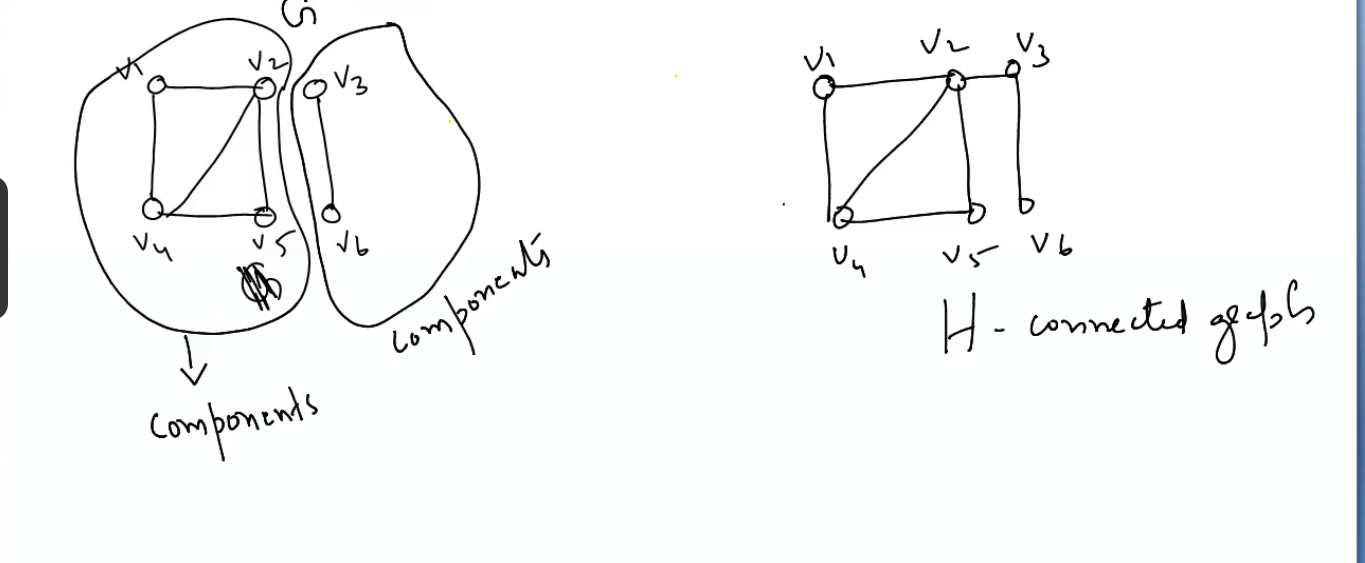 G
V1 V2 V3
V4 V5 V6
components
components
V1 V2 V3
V4 V5 V6
H - connected graph